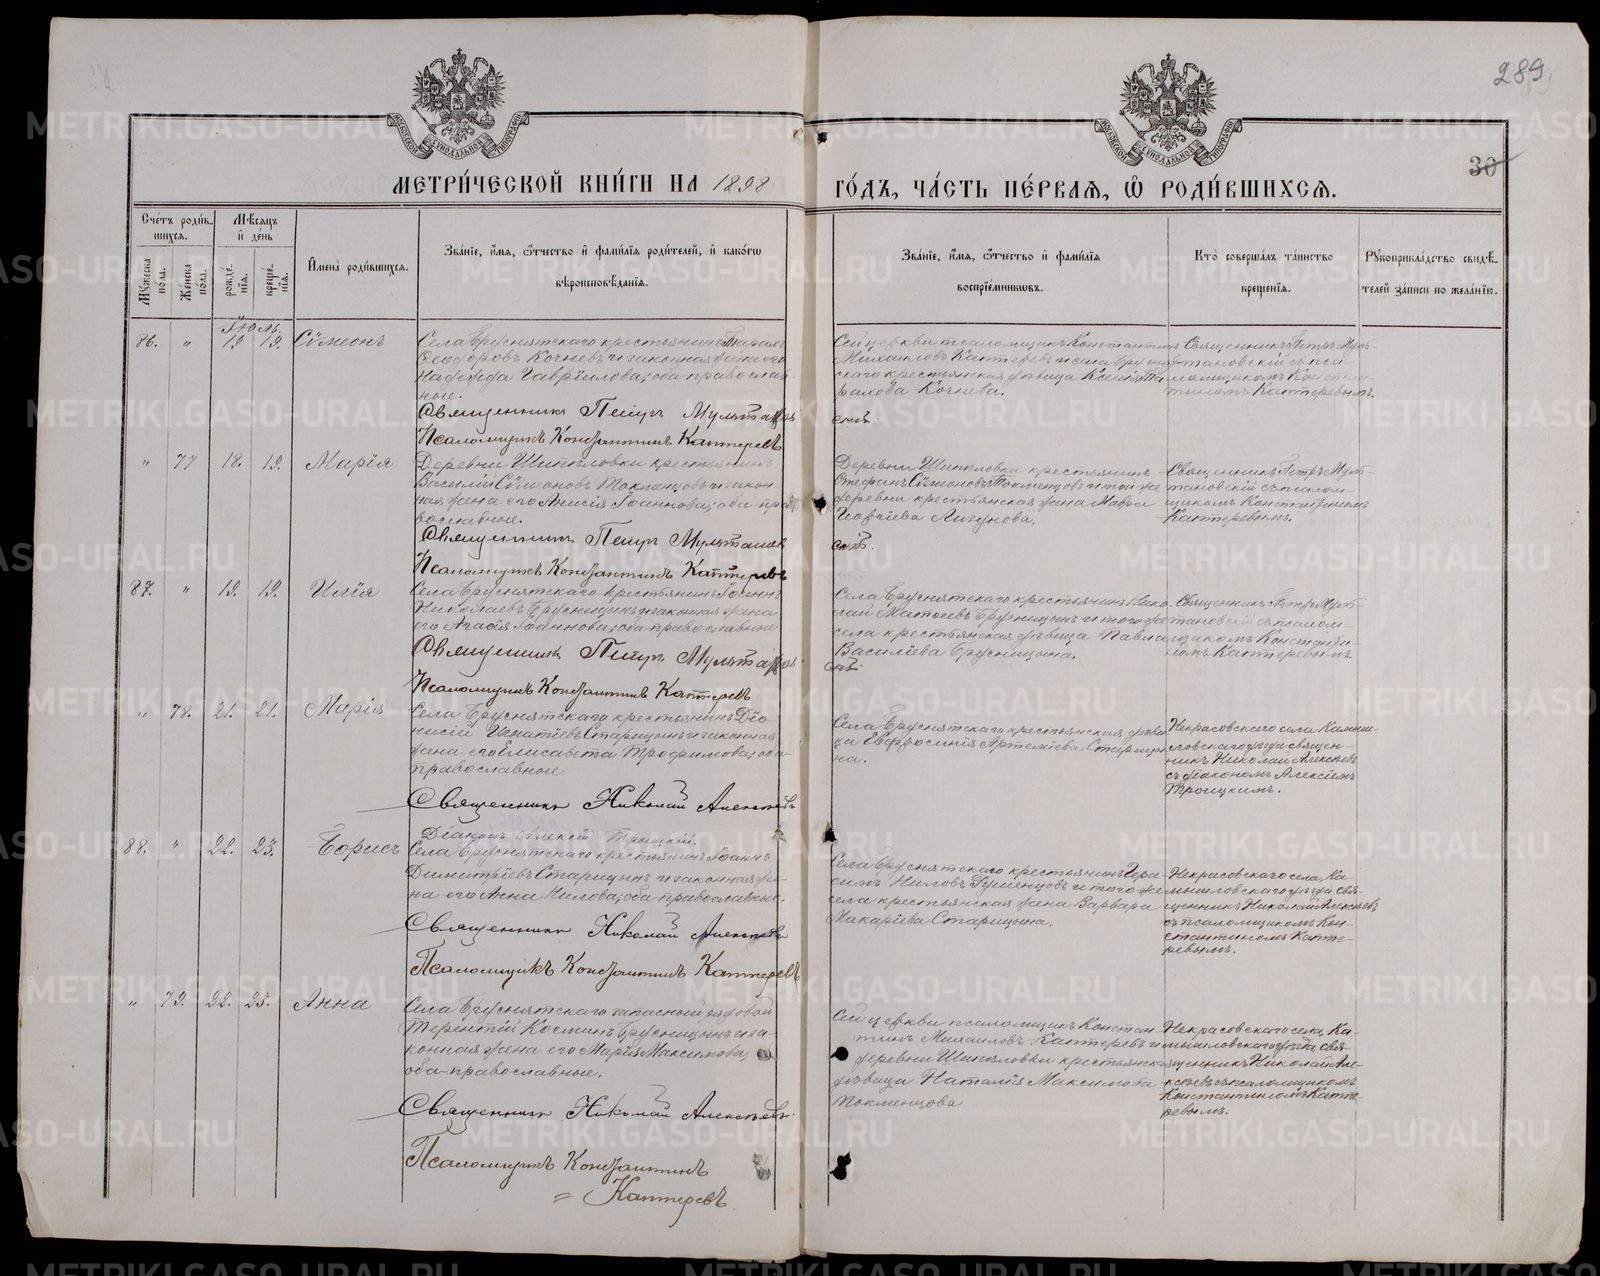 289
30
МЕТРИЧЕСКОЙ КНИГИ НА 1898
ГОДЪ, ЧАСТЬ ПЕРВАЯ, Ѡ РОДИВШИХСЯ.
Счетъ родившихся.
Мужеска пола.
Женска пола.
Мѣсяцъ и день
рожденія.
крещенія.
Имена родившихся.
Званіе, имя, ѻтчество и фамилія родителей, и какогѡ
вѣроисповѣданія.
Званіе, имя, ѻтчество и фамилія
воспріемникѡвъ.
Кто совершалъ таинство
крещенія.
Рукоприкладство свидѣтелей записи по желанію.
Іюль.
86. " 19 19. Сѵмеонъ
Села Бруснятскаго крестьянинъ Тарасъ
Ѳеодоровъ Кочневъ и законная жена его
Надежда Гавріилова; оба православные.
Священникъ Петръ Мультановскій.
Псаломщикъ Константинъ Каптеревъ
Сей церкви псаломщикъ Константинъ
Михаиловъ Каптеревъ и села Бруснятскаго крестьянская дѣвица Ксенія Тарасова Кочнева.
Священникъ Петръ Мультановскій съ псаломщикомъ Константиномъ Каптеревымъ.
" 77 18. 19. Марія
Деревни Шипѣловки крестьянинъ
Василій Сѵмеоновъ Токменцовъ и законная жена его Анисія Іоаннова; оба православные.
Священникъ Петръ Мультановскій.
Псаломщикъ Константинъ Каптеревъ
Деревни Шипѣловки крестьянинъ
Стефанъ Сѵмеоновъ Токменцовъ и той же
деревни крестьянская жена Мавра
Георгіева
Священникъ Петръ Мультановскій съ псаломщикомъ Константиномъ
Каптеревымъ.
87. " 19. 19. Илія
Села Бруснятскаго крестьянинъ Іоаннъ
Николаевъ Брусницынъ и законная жена
его Агаѳія Іоаннова; оба православные
Священникъ Петръ Мультановскій.
Псаломщикъ Константинъ Каптеревъ
Села Бруснятскаго крестьянинъ Николай Матѳеевъ Брусницынъ и того же
села крестьянская дѣвица Павла
Василіева Брусницына.
Священникъ Петръ Мультановскій съ псаломщикомъ Константиномъ Каптеревымъ.
" 78. 21. 21. Марія
Села Бруснятскаго крестьянинъ Діонисій Игнатіевъ Старицынъ и законная
жена его Елисавета Трофимова; оба
православные
Священникъ Николай Алексѣевъ
Діаконъ Алексій Троицкій.
Села Бруснятскаго крестьянская дѣвица Евфросинія Артеміева Старицына.
Некрасовскаго села Камышловскаго уѣзда священникъ Николай Алексѣевъ
съ діакономъ Алексіемъ
Троицкимъ.
88. " 22. 23. Борисъ
Села Бруснятскаго крестьянинъ Іоаннъ
Димитріевъ Старицынъ и законная жена его Анна Нилова; оба православные.
Священникъ Николай Алексѣевъ
Псаломщикъ Константинъ Каптеревъ
Села Бруснятскаго крестьянинъ Герасимъ Ниловъ и того же
села крестьянская жена Варвара
Макаріева Старицына.
Некрасовскаго села, Камышловскаго уѣзда священникъ Николай Алексѣевъ
съ псаломщикомъ Константиномъ Каптеревымъ.
" 79. 22. 23. Анна
Села Бруснятскаго запасный рядовой
Терентій Косминъ Брусницынъ и законная жена его Марія Максимова;
оба православные.
Священникъ Николай Алексѣевъ.
Псаломщикъ Константинъ
Каптеревъ
Сей церкви псаломщикъ Константинъ Михаиловъ Каптеревъ и
деревни Шипѣловки крестьянская
дѣвица Наталія Максимова
Токменцова
Некрасовскаго села, Камышловскаго уѣзда, священникъ Николай Алексѣевъ съ псаломщикомъ
Константиномъ Каптеревымъ.
METRIKI.GASO-URAL.RU